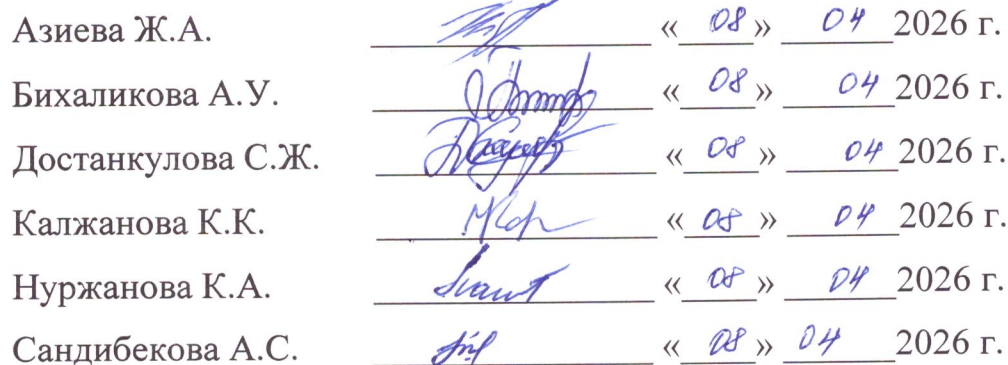 Азиева Ж.А. « 08 » 04 2026 г.
Бихаликова А.У. « 08 » 04 2026 г.
Достанкулова С.Ж. « 08 » 04 2026 г.
Калжанова К.К. « 08 » 04 2026 г.
Нуржанова К.А. « 08 » 04 2026 г.
Сандибекова А.С. « 08 » 04 2026 г.